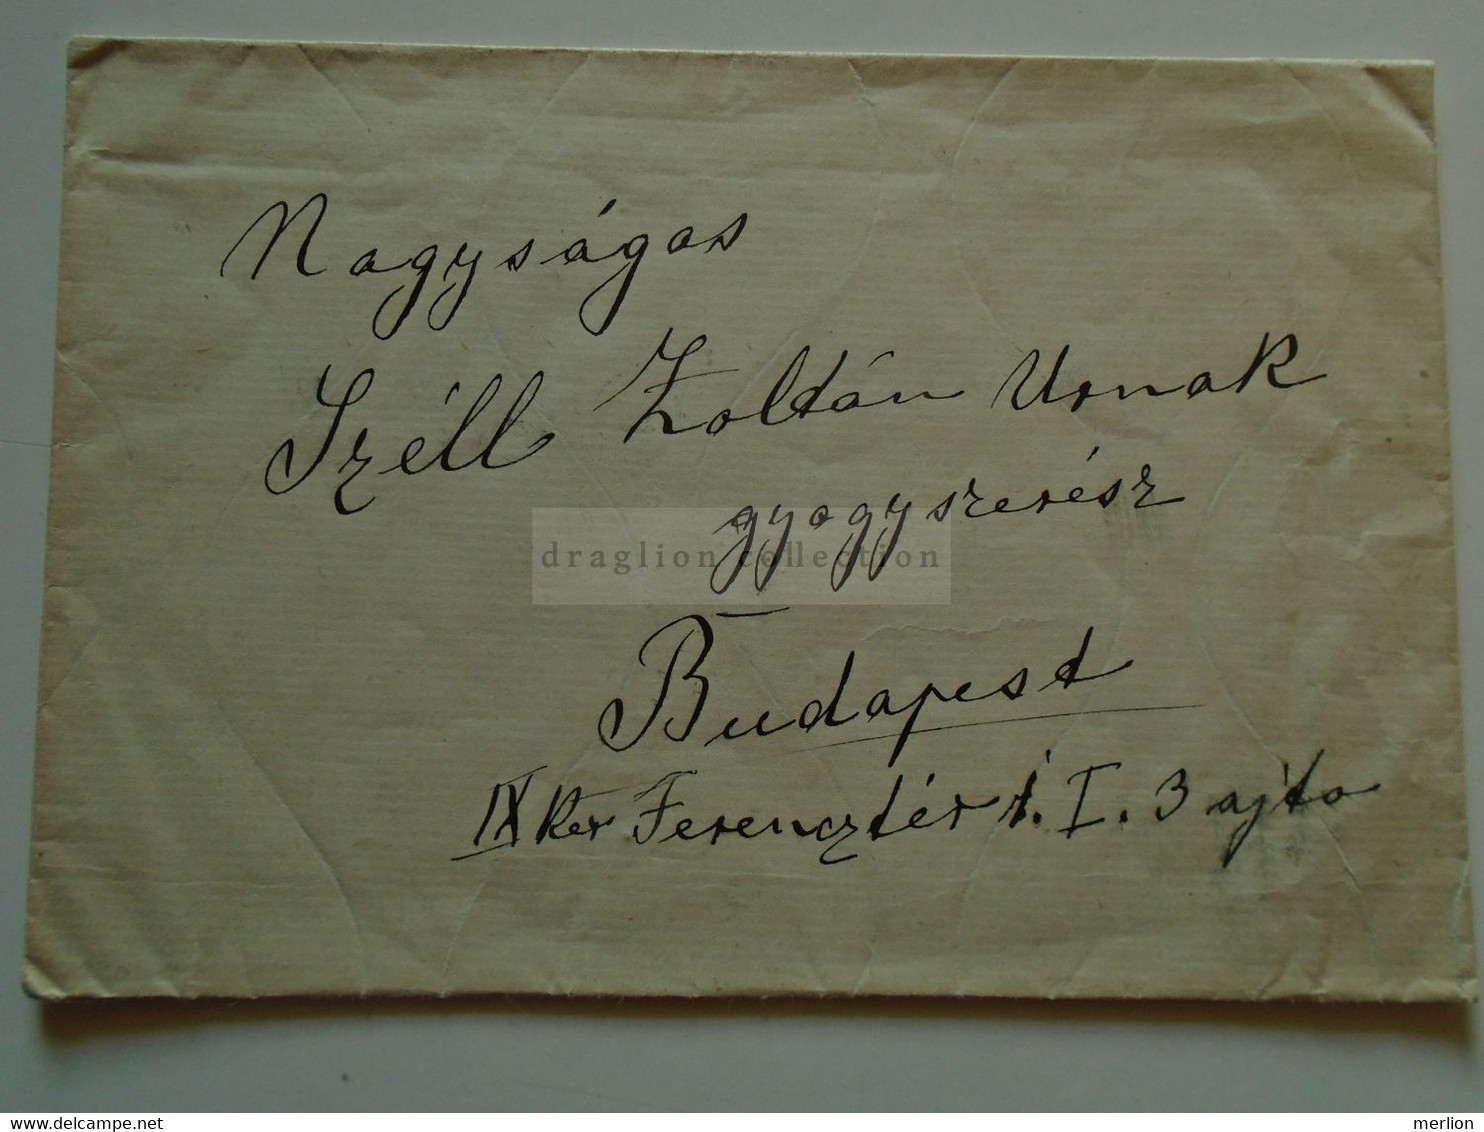 Nagyságos
Széll Zoltán Urnak
gyogyszerész
draglion collection
Budapest
IX Ker Ferencztér 1. I. 3 ajto
www.delcampe.net
merlion